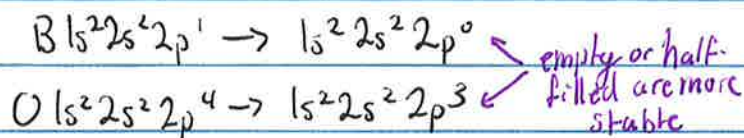 B 1s² 2s² 2p¹ → 1s² 2s² 2p⁰
O 1s² 2s² 2p⁴ → 1s² 2s² 2p³
empty or half-
filled are more
stable